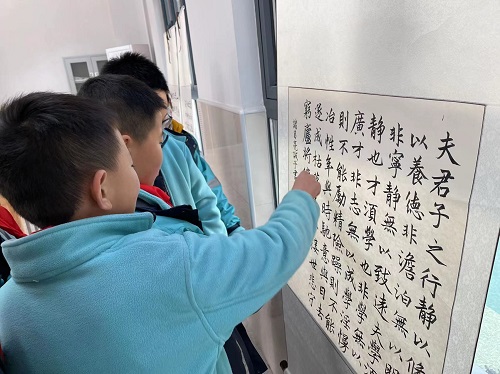 夫君子之行靜以修
以養德非澹泊無以明
非寧靜無以致遠夫學
靜也才須學也非學
廣才非志無以成學淫慢
則不能勵精險躁則不能
冶性年與時馳意與日去
遂成枯世悲守
窮廬將
諸葛亮誡子書